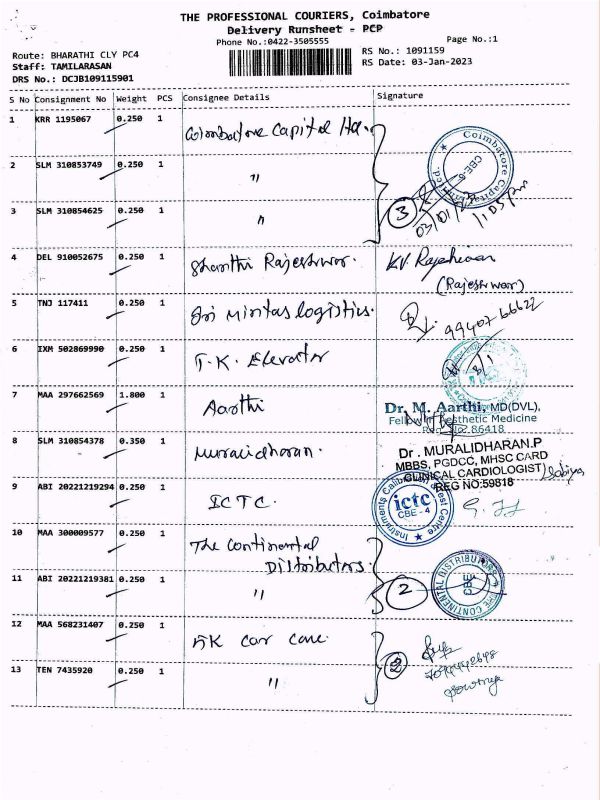 THE PROFESSIONAL COURIERS, Coimbatore
Delivery Runsheet - PCP
Phone No.:0422-3505555
Page No.:1
Route: BHARATHI CLY PC4
Staff: TAMILARASAN
DRS No.: DCJB109115901
RS No.: 1091159
RS Date: 03-Jan-2023
S No Consignment No Weight PCS Consignee Details Signature
1 KRR 1195067 0.250 1 Coimbatore Capital Ltd.
2 SLM 310853749 0.250 1 "
3 SLM 310854625 0.250 1 "
Coimbatore Capital Limited.
CBE-6
3
03/01/23
1:05 pm
4 DEL 910052675 0.250 1 Shanthi Rajeshwar. K.V. Rajeshwar
(Rajeshwar)
5 TNJ 117411 0.250 1 Sri Mintas logistics.
6 IXM 502869990 0.250 1 T.K. Elevator
7 MAA 297662569 1.800 1 Aarthi
Dr. M. Aarthi, MD(DVL),
Fellow in Aesthetic Medicine
Reg No: 86418
8 SLM 310854378 0.350 1 Muralidharan.
Dr. MURALIDHARAN.P
MBBS, PGDCC, MHSC CARD
CLINICAL CARDIOLOGIST)
REG NO:59818
9 ABI 20221219294 0.250 1 ICTC.
Instruments Calibration Test Centre
ictc
CBE - 4
10 MAA 300009577 0.250 1 The Continental
Distributors.
11 ABI 20221219381 0.250 1 "
2
THE CONTINENTAL DISTRIBUTORS
CBE
12 MAA 568231407 0.250 1 AK car care
13 TEN 7435920 0.250 1 "
2
Sowmya